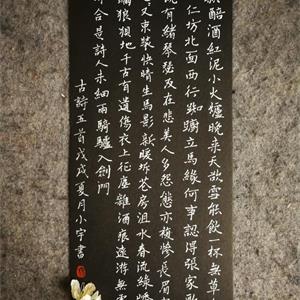 新醅酒紅泥小火爐晚来天欲雪能飲一杯無草
仁坊北面西行立馬緣何事認得張家歌
有緒琴瑟及在悲美人多怨態亦慘長眉
又束裝快晴生馬影新暖坼花房沮水春流緑
狼狽地千古有遺傷衣上征塵雜酒痕遠遊無
合是詩人未細雨騎驢入劍門
古詩五首戊戌夏月小宇書